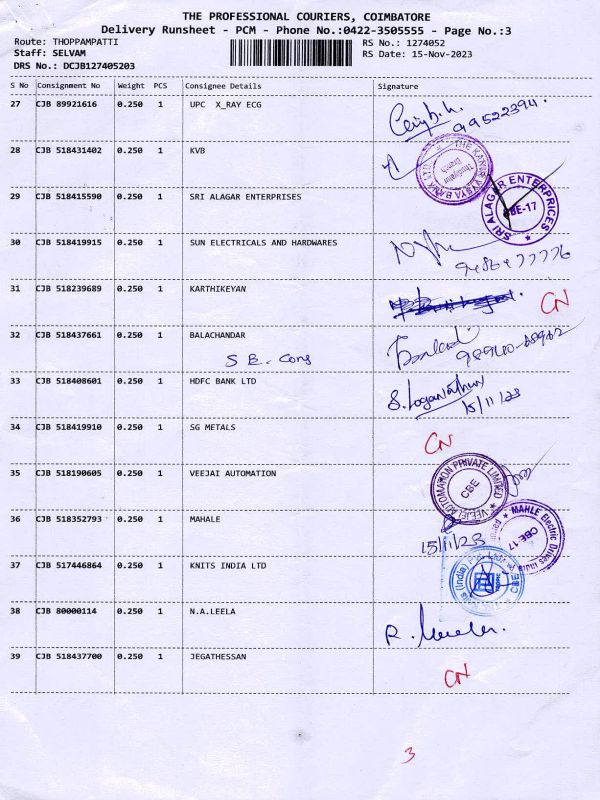 THE PROFESSIONAL COURIERS, COIMBATORE
Delivery Runsheet - PCM - Phone No.:0422-3505555 - Page No.:3
Route: THOPPAMPATTI RS No.: 1274052
Staff: SELVAM RS Date: 15-Nov-2023
DRS No.: DCJB127405203
S No Consignment No Weight PCS Consignee Details Signature
27 CJB 89921616 0.250 1 UPC X_RAY ECG
28 CJB 518431402 0.250 1 KVB
THE KARUR VYSYA BANK LTD
Branch
29 CJB 518415590 0.250 1 SRI ALAGAR ENTERPRISES
SRI ALAGAR ENTERPRICES
CBE-17
30 CJB 518419915 0.250 1 SUN ELECTRICALS AND HARDWARES
31 CJB 518239689 0.250 1 KARTHIKEYAN
CN
32 CJB 518437661 0.250 1 BALACHANDAR
S B. Cons
33 CJB 518408601 0.250 1 HDFC BANK LTD
S. Loganathan
15/11/23
34 CJB 518419910 0.250 1 SG METALS
CN
35 CJB 518190605 0.250 1 VEEJAI AUTOMATION
VEEJEI AUTOMATION PRIVATE LIMITED
CBE
36 CJB 518352793 0.250 1 MAHALE
15/11/23
MAHLE Electric Drives India
CBE-17
37 CJB 517446864 0.250 1 KNITS INDIA LTD
(India) CBE
38 CJB 80000114 0.250 1 N.A.LEELA
R. Leela.
39 CJB 518437700 0.250 1 JEGATHESSAN
CN
3